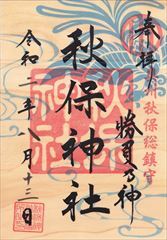 奉拝
秋保総鎮守
勝負の神
秋保神社
令和二年八月十三日